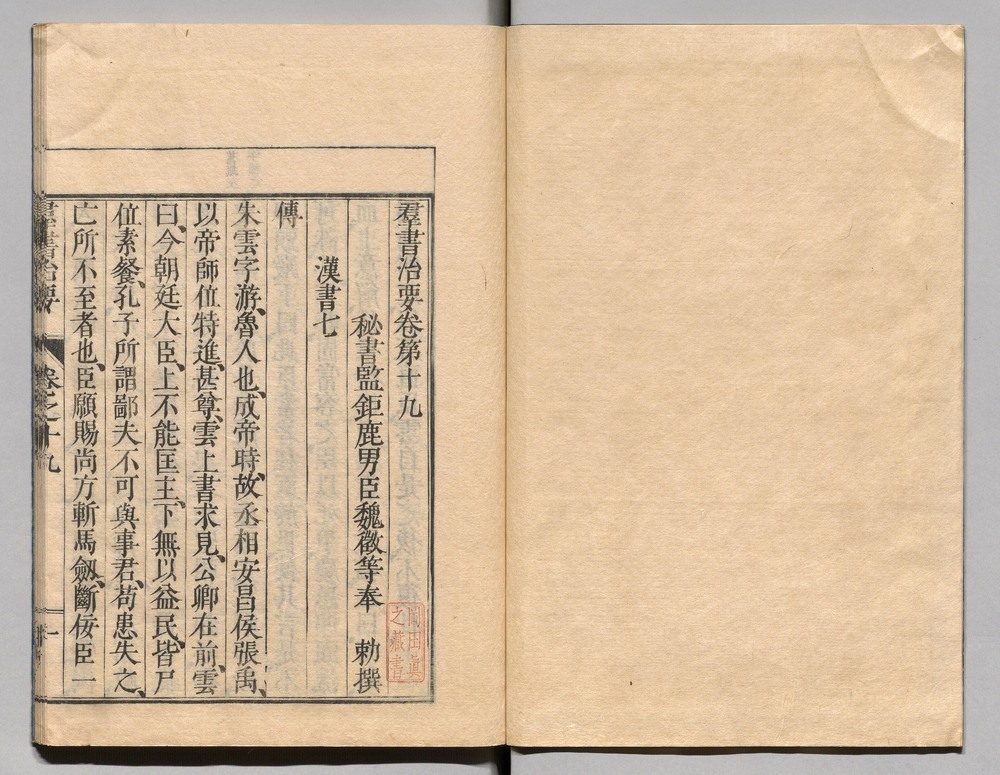 羣書治要卷第十九
秘書監鉅鹿男臣魏徵等奉　勅撰
漢書七
傳
朱雲字游、魯人也、成帝時、故丞相安昌侯張禹、
以帝師位特進、甚尊、雲上書求見、公卿在前、雲
曰、今朝廷大臣、上不能匡主、下無以益民、皆尸
位素餐、孔子所謂鄙夫不可與事君、苟患失之、
亡所不至者也、臣願賜尚方斬馬劔、斷佞臣一
羣書治要　卷之十九　一
之藏書